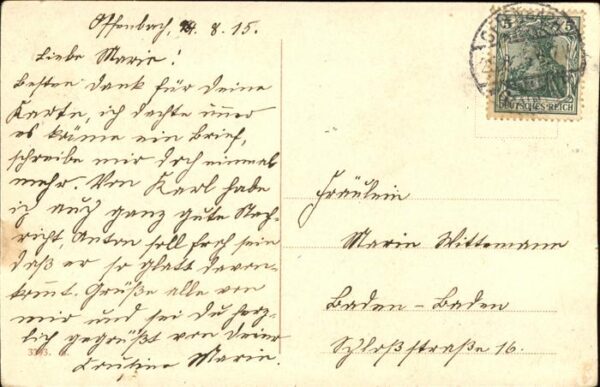 Offenbach, 8. 15.
Liebe Marie!
Besten Dank für deine
Karte, ich dachte immer
es käme ein Brief,
schreibe mir doch einmal
mehr. Von Karl habe
ich auch ganz gute Nach-
richt, Anton soll froh sein
daß er so glatt davon-
kommt. Grüße alle von
mir und sei du herz-
lich gegrüßt von deiner
Cousine Marie.
5
5
DEUTSCHES REICH
Fräulein
Marie Wittemann
Baden-Baden
Schloßstraße 16.